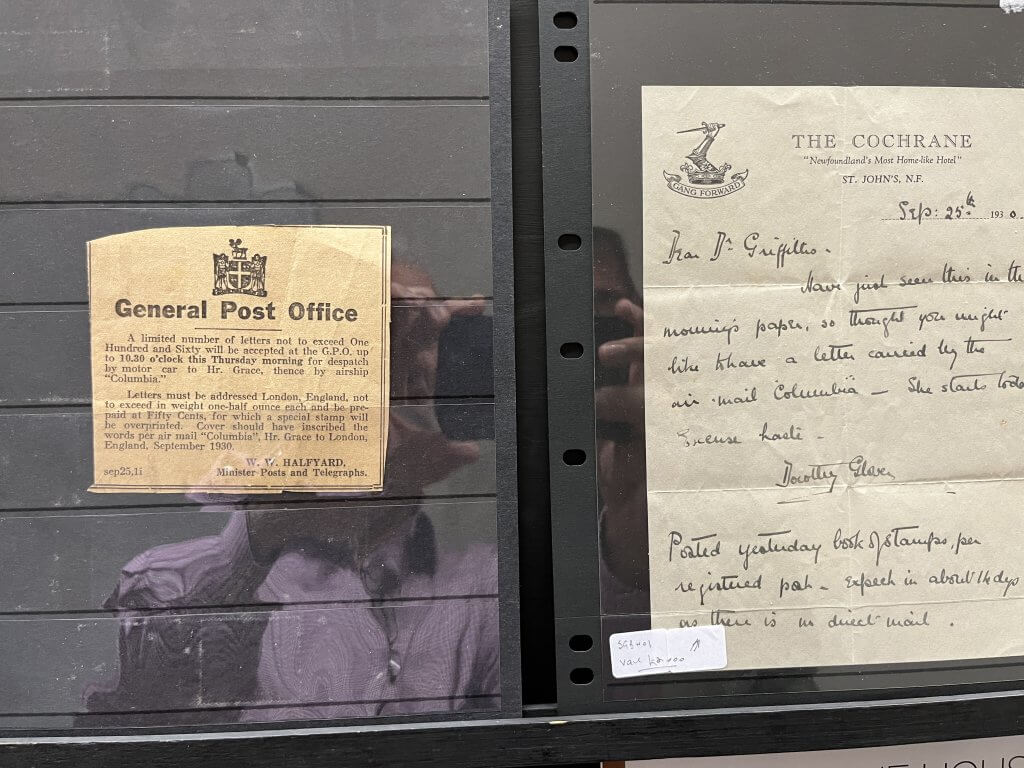 General Post Office
A limited number of letters not to exceed One
Hundred and Sixty will be accepted at the G.P.O. up
to 10.30 o'clock this Thursday morning for despatch
by motor car to Hr. Grace, thence by airship
"Columbia."
Letters must be addressed London, England, not
to exceed in weight one-half ounce each and be pre-
paid at Fifty Cents, for which a special stamp will
be overprinted. Cover should have inscribed the
words per air mail "Columbia", Hr. Grace to London,
England, September 1930.
W. W. HALFYARD,
sep25,1i Minister Posts and Telegraphs.
GANG FORWARD
THE COCHRANE
"Newfoundland's Most Home-like Hotel"
ST. JOHN'S, N.F.
Sep: 25th 1930.
Dear Dr. Griffiths.
Have just seen this in the
morning's paper, so thought you might
like to have a letter carried by the
air mail "Columbia" — She starts
Excuse haste -
Dorothy
Posted yesterday book of stamps, per
registered post - Expect in about 14 days
as there is no direct mail.